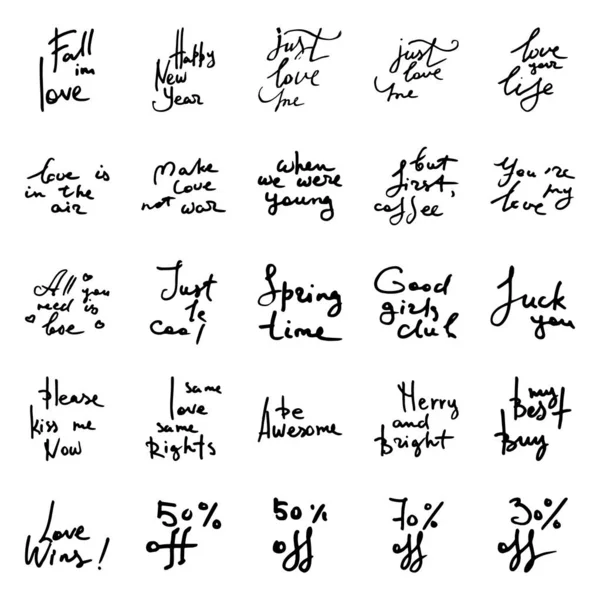 Fall
in
love
Happy
New
Year
just
love
me
just
love
me
love
your
life
love is
in the
air
Make
love
not war
when
we were
young
but
first,
coffee
You're
my
love
All you
need is
love
Just
be
cool
Spring
time
Good
girls
club
Fuck
you
Please
kiss me
Now
same
love
same
Rights
be
Awesome
Merry
and
Bright
my
Best
buy
Love
Wins!
50%
off
50%
off
70%
off
30%
off